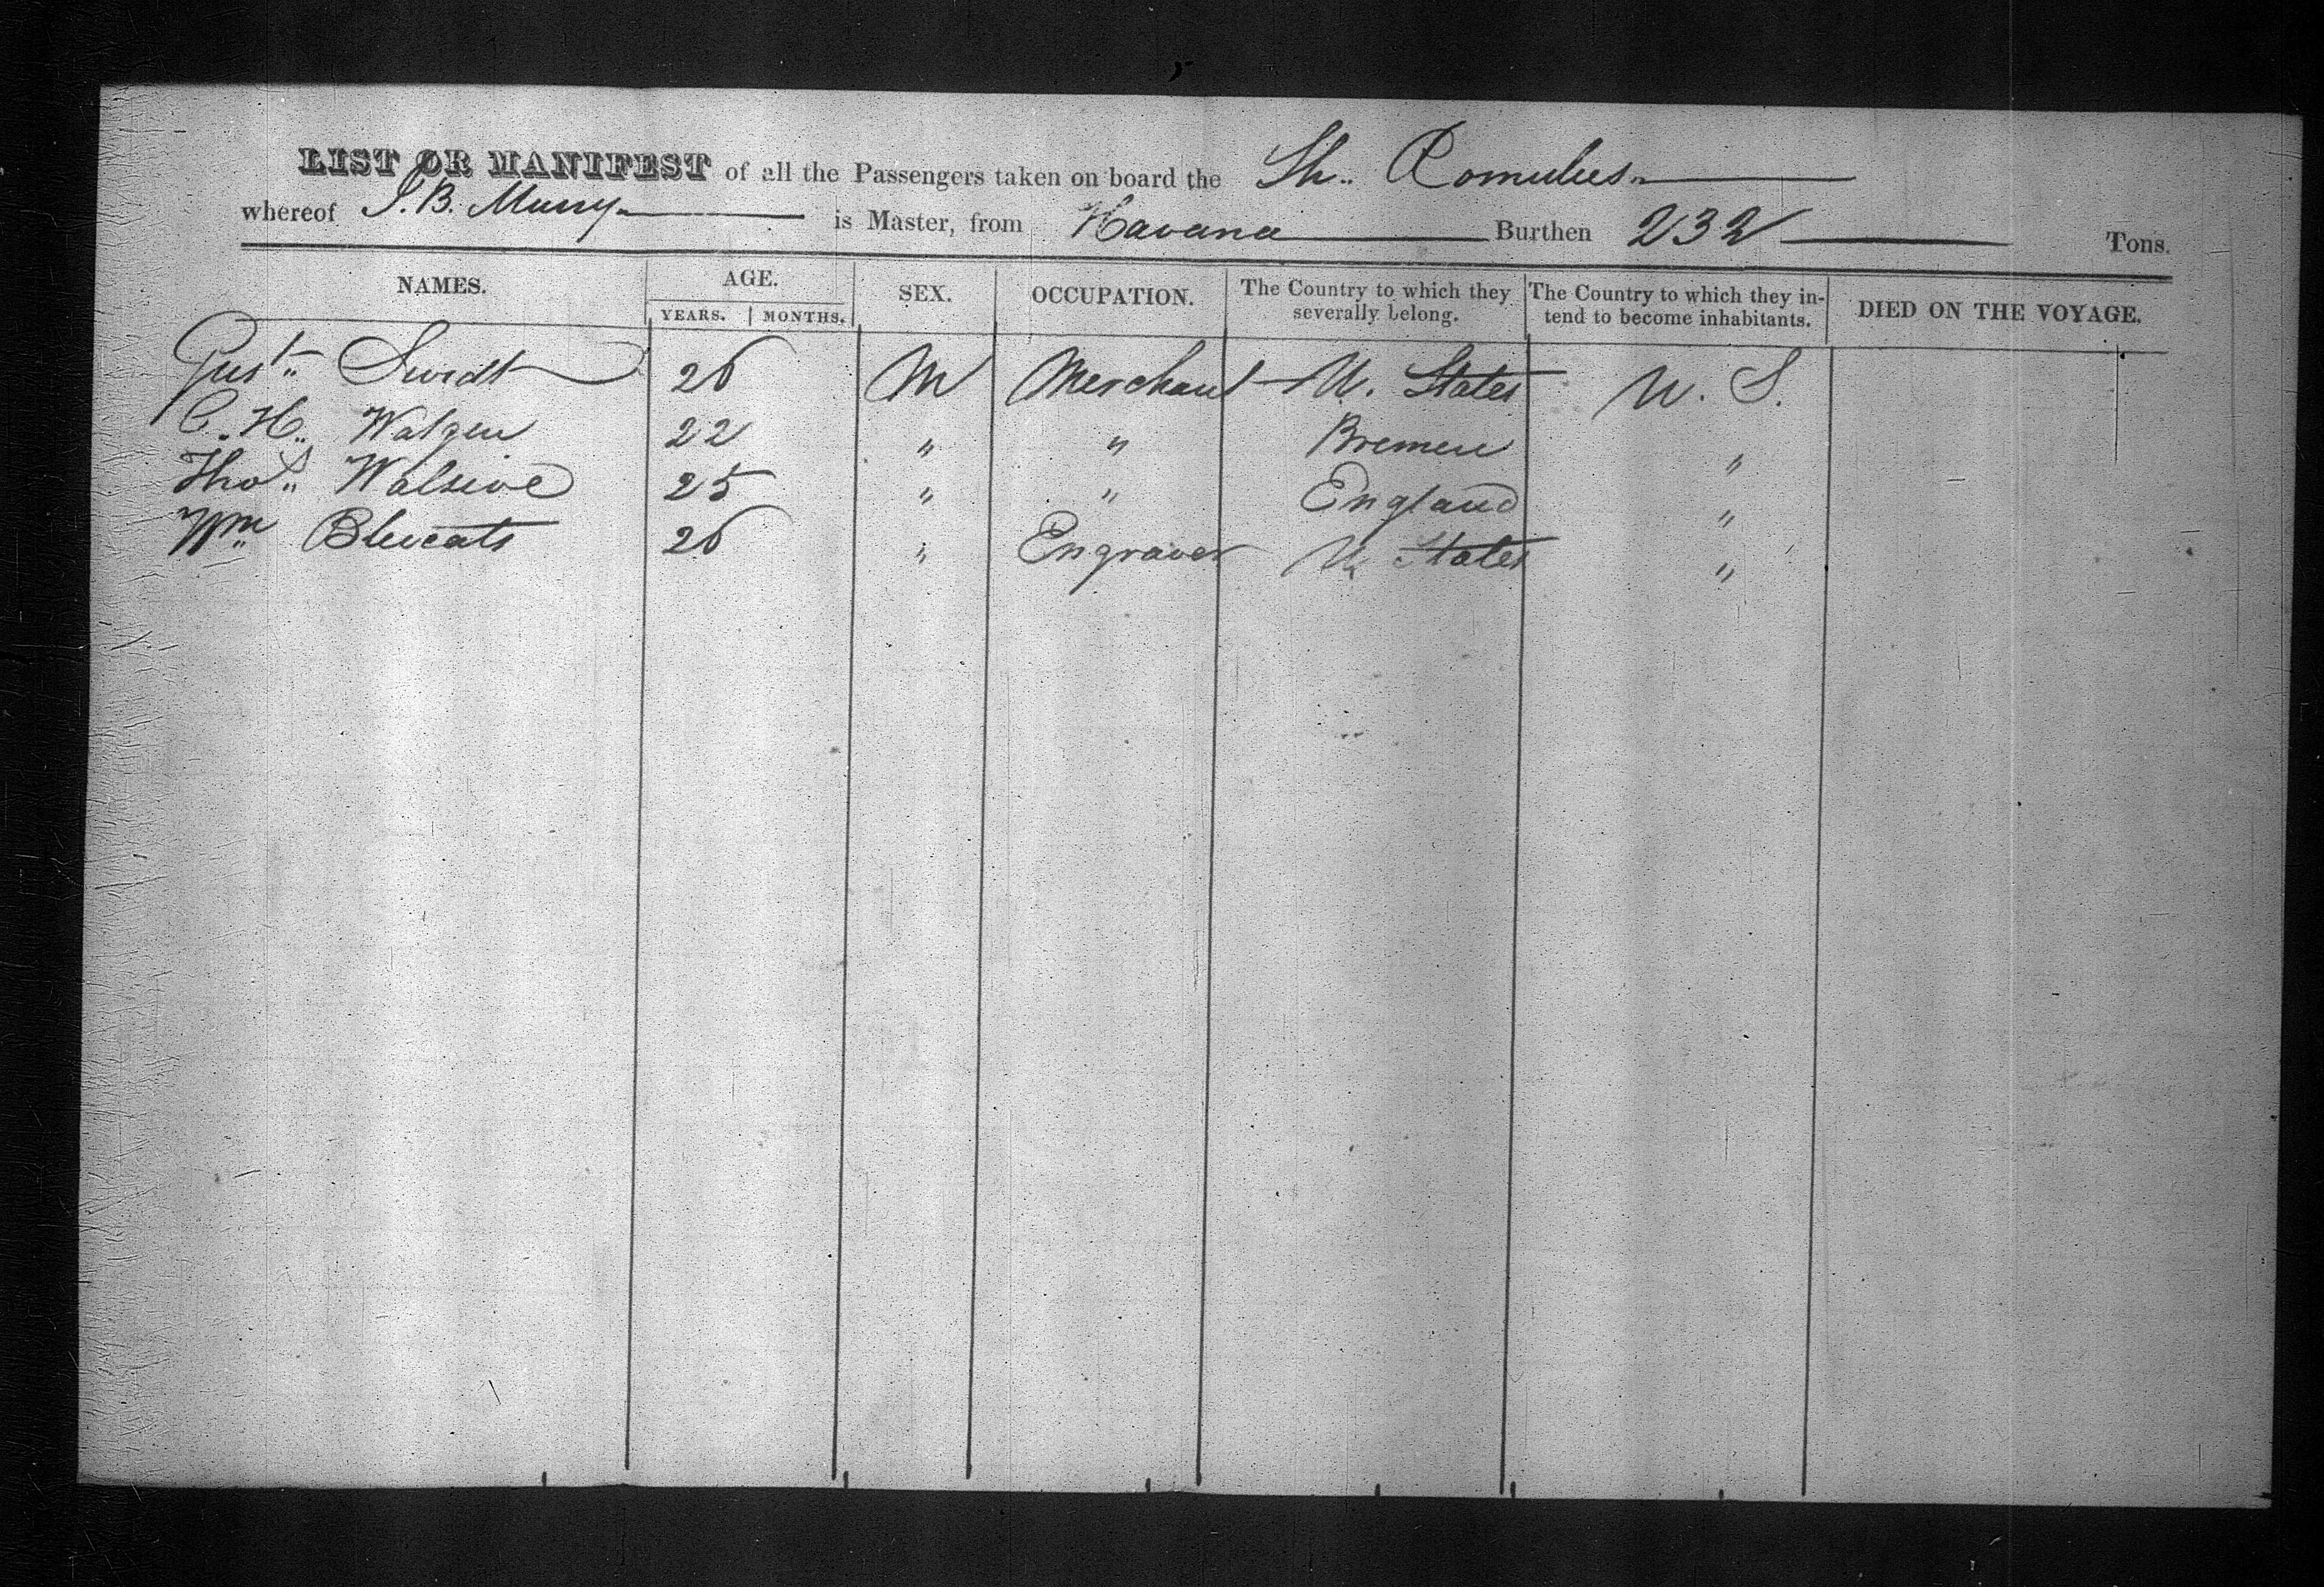 LIST OR MANIFEST of all the Passengers taken on board the Sh. Romulus
whereof J. B. Murry is Master, from Havana Burthen 232 Tons.
NAMES. AGE. YEARS. MONTHS. SEX. OCCUPATION. The Country to which they severally belong. The Country to which they intend to become inhabitants. DIED ON THE VOYAGE.
Gust. 26 M Merchant U. States U. S.
C. H. Watgen 22 " " Bremen "
Thos. 25 " " England "
Wm 26 " Engraver U. States "